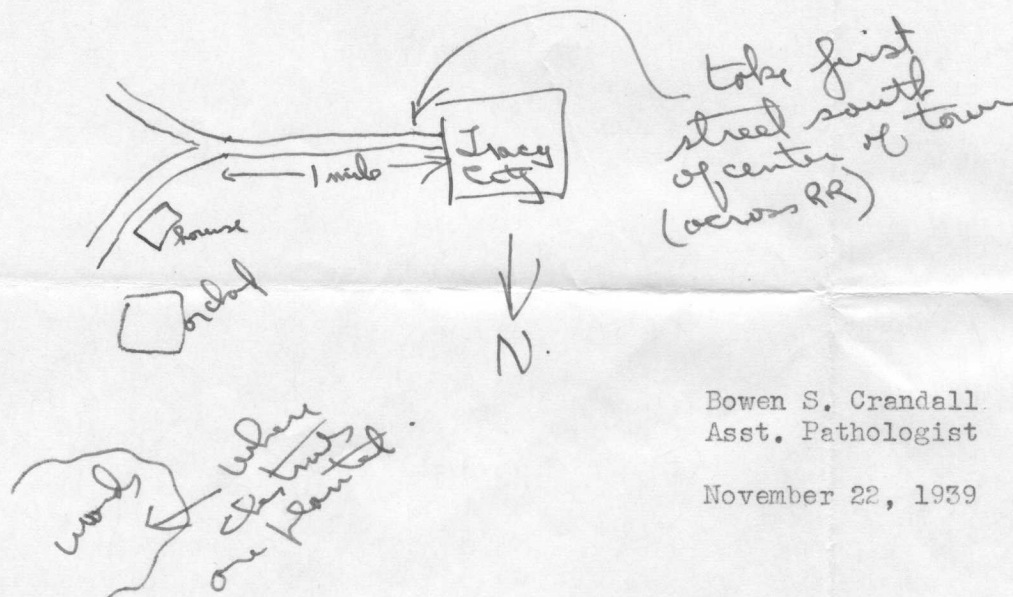 take first
street south
of center of town
(across RR)
Tracy
City
1 mile
house
orchard
N.
Where
chestnuts
are planted.
woods
Bowen S. Crandall
Asst. Pathologist
November 22, 1939